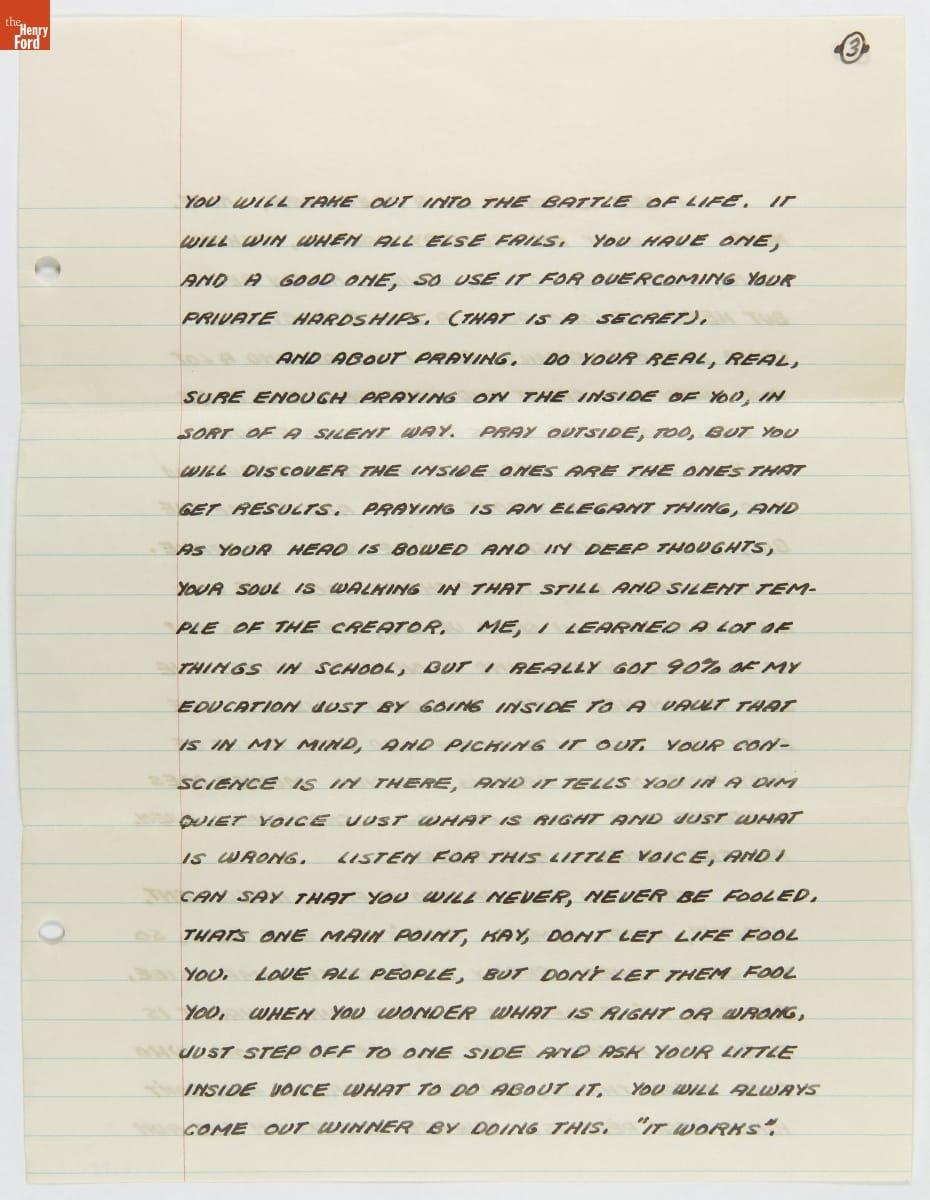 the
Henry
Ford
3
YOU WILL TAKE OUT INTO THE BATTLE OF LIFE. IT
WILL WIN WHEN ALL ELSE FAILS. YOU HAVE ONE,
AND A GOOD ONE, SO USE IT FOR OVERCOMING YOUR
PRIVATE HARDSHIPS. (THAT IS A SECRET).
AND ABOUT PRAYING. DO YOUR REAL, REAL,
SURE ENOUGH PRAYING ON THE INSIDE OF YOU, IN
SORT OF A SILENT WAY. PRAY OUTSIDE, TOO, BUT YOU
WILL DISCOVER THE INSIDE ONES ARE THE ONES THAT
GET RESULTS. PRAYING IS AN ELEGANT THING, AND
AS YOUR HEAD IS BOWED AND IN DEEP THOUGHTS,
YOUR SOUL IS WALKING IN THAT STILL AND SILENT TEM-
PLE OF THE CREATOR. ME, I LEARNED A LOT OF
THINGS IN SCHOOL, BUT I REALLY GOT 90% OF MY
EDUCATION JUST BY GOING INSIDE TO A VAULT THAT
IS IN MY MIND, AND PICKING IT OUT. YOUR CON-
SCIENCE IS IN THERE, AND IT TELLS YOU IN A DIM
QUIET VOICE JUST WHAT IS RIGHT AND JUST WHAT
IS WRONG. LISTEN FOR THIS LITTLE VOICE, AND I
CAN SAY THAT YOU WILL NEVER, NEVER BE FOOLED.
THATS ONE MAIN POINT, KAY, DONT LET LIFE FOOL
YOU. LOVE ALL PEOPLE, BUT DON'T LET THEM FOOL
YOU. WHEN YOU WONDER WHAT IS RIGHT OR WRONG,
JUST STEP OFF TO ONE SIDE AND ASK YOUR LITTLE
INSIDE VOICE WHAT TO DO ABOUT IT. YOU WILL ALWAYS
COME OUT WINNER BY DOING THIS. "IT WORKS".